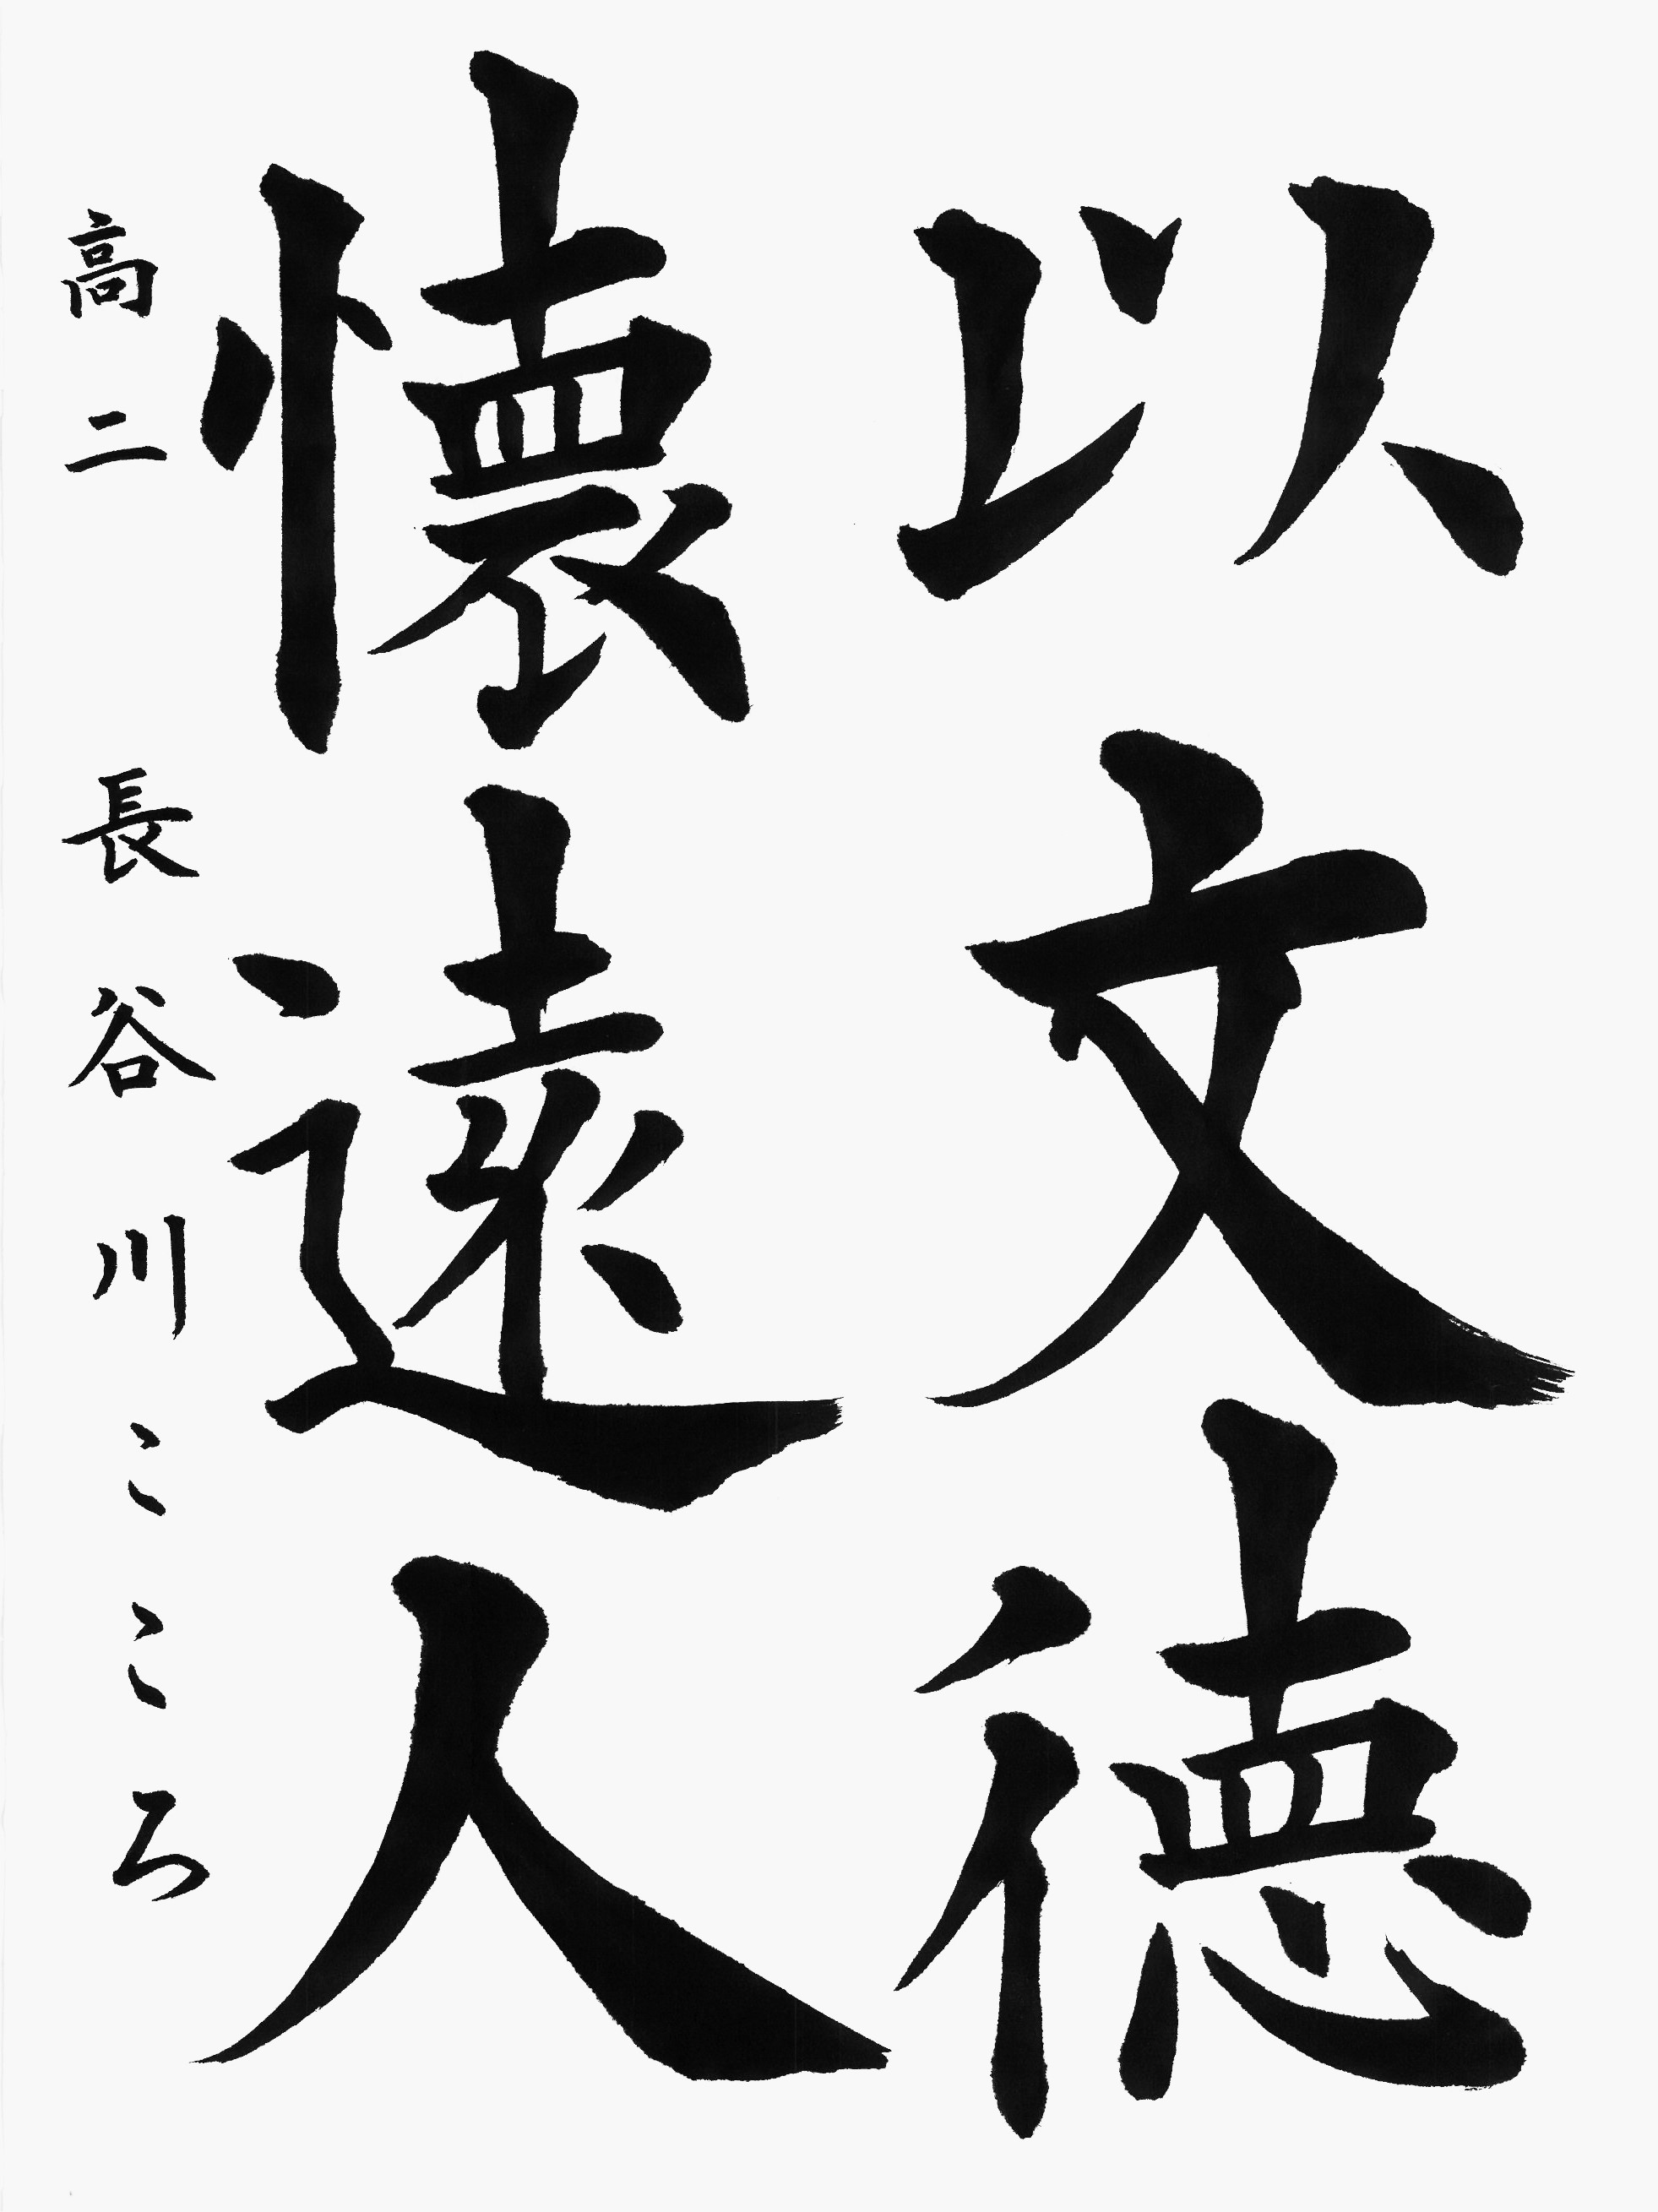 以文徳
懐遠人
高二 長谷川こころ